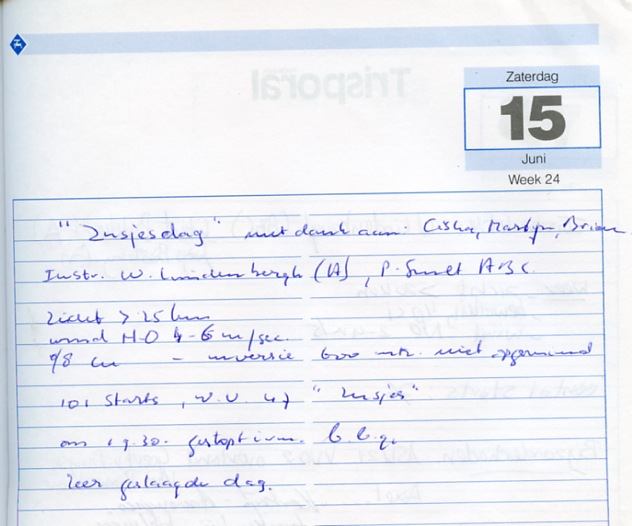 Trisporal
Zaterdag
15
Juni
Week 24
"Zusjesdag" met dank aan: Ciska, Martyn, Brian
Instr. W. Lindenbergh (A), P. Smelt ABC.
zicht > 25 km
wind N.O 4-6 m/sec.
0/8 cu - inversie 600 mtr. niet
101 starts, w.v. 47 "Zusjes"
om 19.30. gestopt i.v.m. b.b.q.
zeer geslaagde dag.